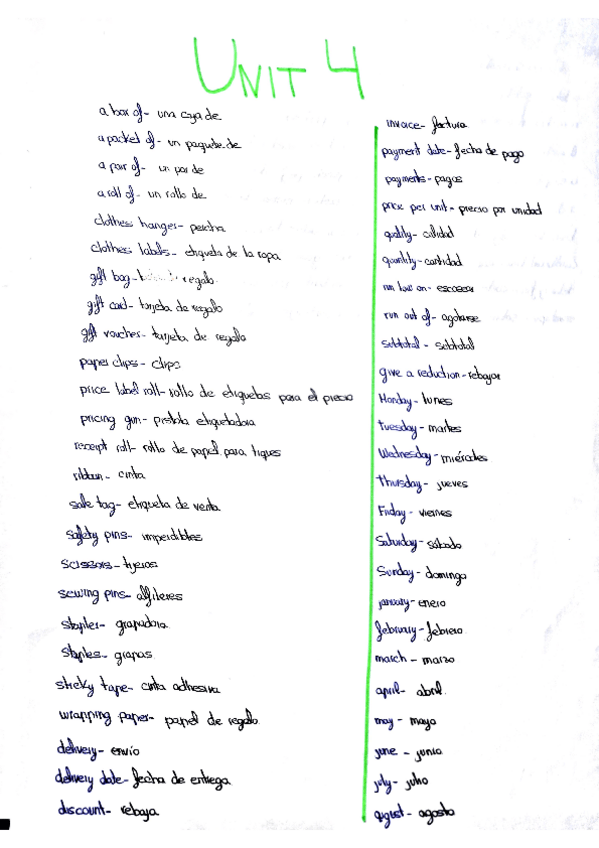 UNIT 4
a box of- una caja de
a packet of- un paquete de
a pair of- un par de
a roll of- un rollo de
clothes hanger- percha
clothes labels- etiqueta de la ropa
gift bag- regalo
gift card- tarjeta de regalo
gift voucher- tarjeta de regalo
paper clips- clips
price label roll- rollo de etiquetas para el precio
pricing gun- pistola etiquetadora
receipt roll- rollo de papel para tiques
ribbon- cinta
sale tag- etiqueta de venta
safety pins- imperdibles
scissors- tijeras
sewing pins- alfileres
stapler- grapadora
staples- grapas
sticky tape- cinta adhesiva
wrapping paper- papel de regalo
delivery- envío
delivery date- fecha de entrega
discount- rebaja
invoice- factura
payment date- fecha de pago
payments- pagos
price per unit- precio por unidad
quality- calidad
quantity- cantidad
run low on- escasear
run out of- agotarse
subtotal- subtotal
give a reduction- rebajar
Monday- lunes
Tuesday- martes
Wednesday- miércoles
Thursday- jueves
Friday- viernes
Saturday- sábado
Sunday- domingo
january- enero
february- febrero
march- marzo
april- abril
may- mayo
june- junio
july- julio
august- agosto